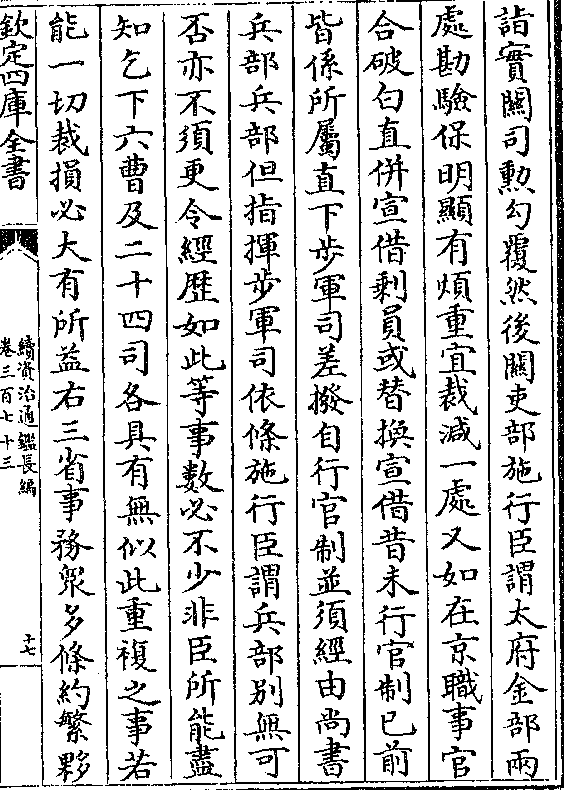 詣實關司勲勾覆然後關吏部施行臣謂太府金部兩
處勘驗保明顯有煩重宜裁減一處又如在京職事官
合破白直併宣借剩員或替換宣借昔未行官制已前
皆係所屬直下步軍司差撥自行官制並須經由尚書
兵部兵部但指揮步軍司依條施行臣謂兵部别無可
否亦不須更令經歴如此等事數必不少非臣所能盡
知乞下六曹及二十四司各具有無似此重複之事若
能一切裁損必大有所益右三省事務衆多條約繁夥
欽定四庫全書
續資治通鑑長編
卷三百七十三
十七